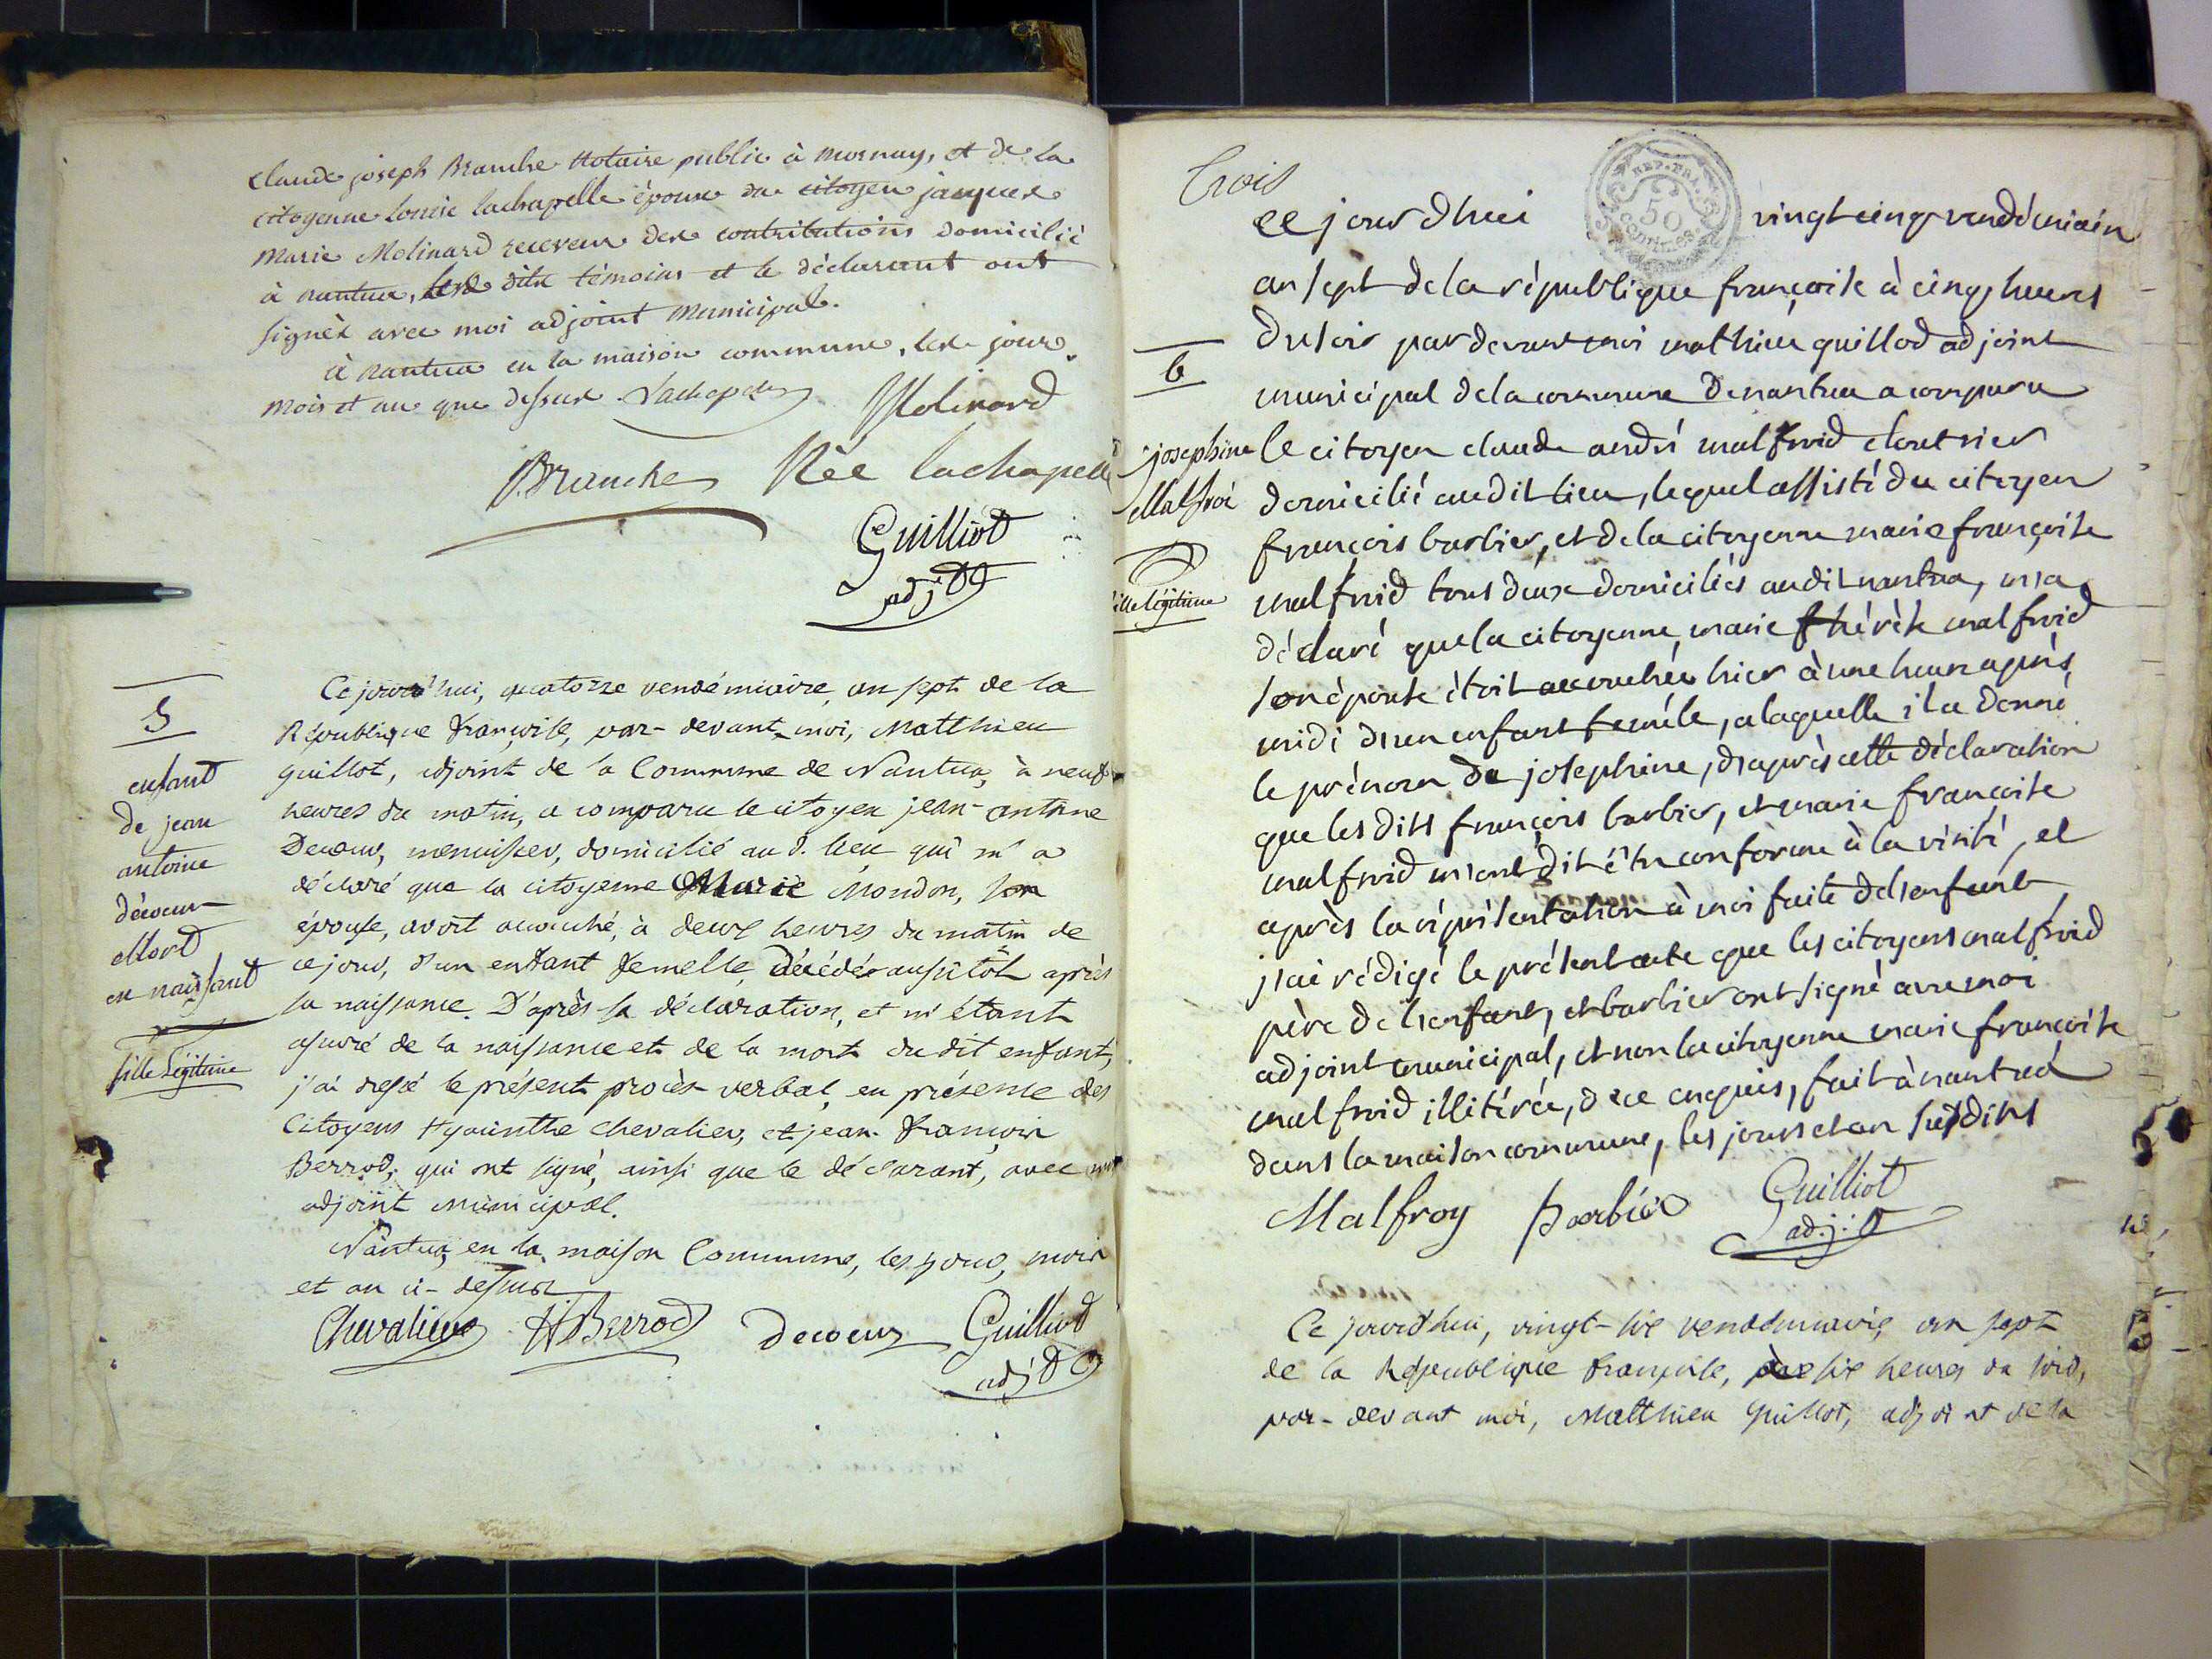 Claude joseph Branche Notaire public à mornay, et de la
citoyenne Louise lachapelle épouse du citoyen jacques
Marie Molinard receveur des contributions domicilié
à nantua, les dits témoins et le déclarant ont
signés avec moi adjoint municipal.
à nantua en la maison commune, les jour
mois et an que dessus. Lachapelle Molinard
Branche Née lachapelle
Guilliot
adjt
5
enfant
de jean
antoine
décoeur
Mort
en naissant
fille Légitime
Ce jourd'hui, quatorze vendémiaire, an sept de la
République françoise, par-devant moi, Matthieu
Guillot, adjoint de la Commune de Nantua, à neuf
heures du matin, a comparu le citoyen jean-antoine
Decoeur, menuisier, domicilié au d. lieu qui m'a
déclaré que la citoyenne Marie Mondon, son
épouse, avoit accouché, à deux heures du matin de
ce jour, d'un enfant femelle, décédée aussitôt après
sa naissance. D'après sa déclaration, et m'étant
assuré de la naissance et de la mort du dit enfant,
j'ai dressé le présent procès-verbal, en présence des
Citoyens Hyacinthe Chevalier, et jean-françois
Berrod, qui ont signé, ainsi que le déclarant, avec moi
adjoint municipal.
Nantua, en la maison Commune, les jour, mois
et an ci-dessus
Chevalier H Berrod Decoeur Guilliot
adjt
trois
REP. FRA.
50
Centimes
ce jourdhui vingt cinq vendémiair
an sept de la république françoise à cinq heures
du soir pardevant moi mathieu guillod adjoint
municipal de la commune de nantua a comparu
6
josephine
Malfroi
fille légitime
le citoyen claude andré malfroid cloutrier
domicilié audit lieu, lequel assisté du citoyen
françois barbier, et de la citoyenne marie françoise
malfroid tous deux domiciliés audit nantua, m'a
déclaré que la citoyenne, marie thérèse malfroid
son épouse étoit accouchée hier à une heure après
midi d'un enfant femèle, a laquelle il a donné
le prénom de josephine, d'après cette déclaration
que les dits françois barbier, et marie francoise
malfroid m'ont dit être conforme à la vérité, et
après la représentation à moi faite de l'enfant
j'ai rédigé le présent acte que les citoyens malfroid
père de l'enfant, et barbier ont signé avec moi
adjoint municipal, et non la citoyenne marie françoise
malfroid illitérée, de ce enquis, fait à nantua
dans la maison commune, les jours et an susdits
Malfroy Barbier Guilliot
adj.t
Ce jourd'hui, vingt-six vendémiaire, an sept
de la République françoise, à six heures du soir,
par-devant moi, Matthieu Guillot, adjoint de la